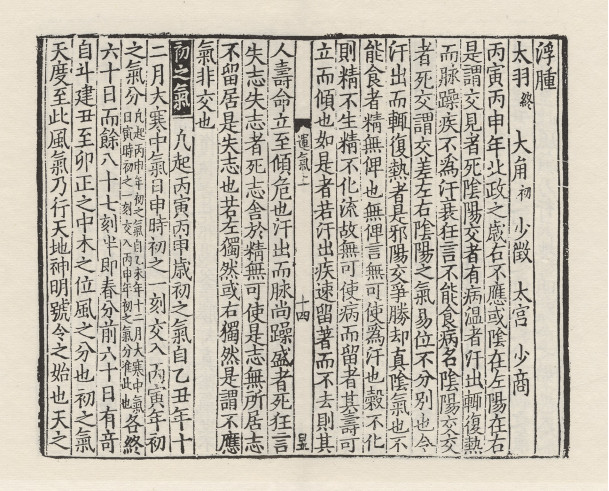 浮腫
太羽終 大角初 少徵 太宫 少商
丙寅丙申年北政之歳右不應或陰在左陽在右
是謂交見者死陰陽交者有病温者汗出輙復熱
而脉躁疾不爲汗衰狂言不能食病名陰陽交交
者死交謂交差左右陰陽之氣易位不分别也今
汗出而輙復熱者是邪陽交爭勝却真陰氣也不
能食者精無俾也無俾言無可使爲汗也穀不化
則精不生精不化流故無可使病而留者其壽可
立而傾也如是者若汗出疾速留著而不去則其
運氣上 十四
人壽命立至傾危也汗出而脉尚躁盛者死狂言
失志失志者死志舍於精無可使是志無所居志
不留居是失志也若左獨然或右獨然是謂不應
氣非交也
初之氣 凡起丙寅丙申歳初之氣自乙丑年十
二月大寒中氣日申時初之一刻交入丙寅年初
之氣分凡起丙申年初之氣自乙未年十二月大寒中氣日寅時初之一刻交入丙申年初之氣分准此也各終
六十日而餘八十七刻半即春分前六十日有竒
自斗建丑至卯正之中木之位風之分也初之氣
天度至此風氣乃行天地神明號令之始也天之